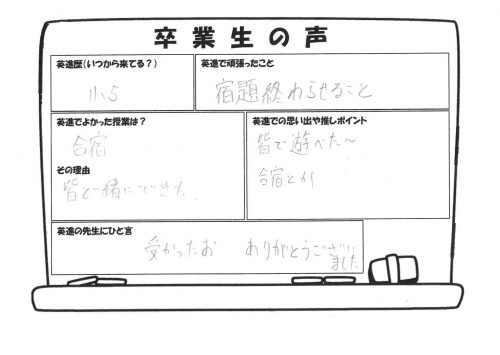 卒業生の声
英進歴(いつから来てる？)
小5
英進で頑張ったこと
宿題終わらせること
英進でよかった授業は？
合宿
その理由
皆と一緒にできた
英進での思い出や推しポイント
皆で遊べた～
合宿とか
英進の先生にひと言
受かったお ありがとうござい
ました